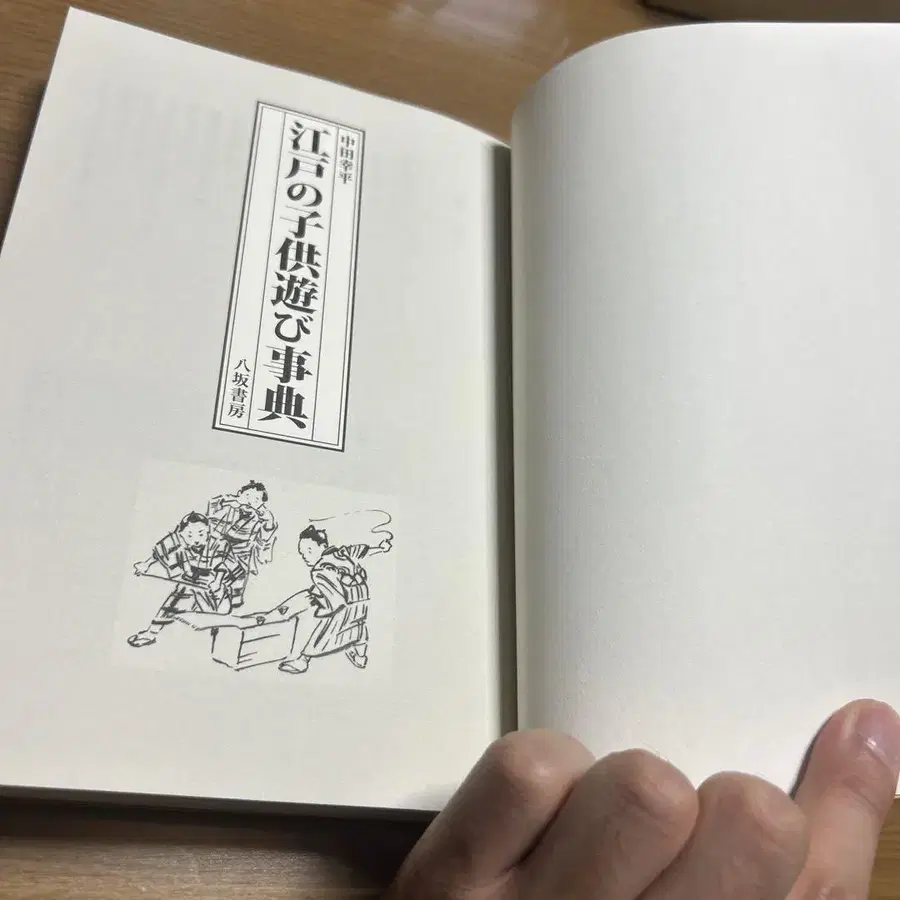 中田幸平
江戸の子供遊び事典
八坂書房